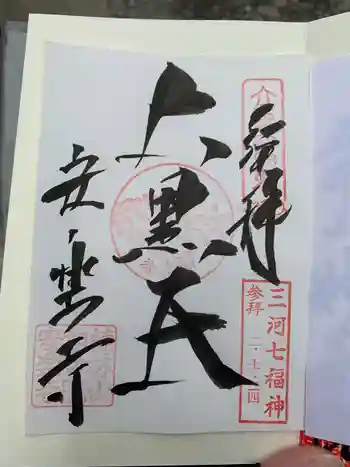 奉拝
三河七福神
参拝
二・七・二四
大黒天
安楽寺